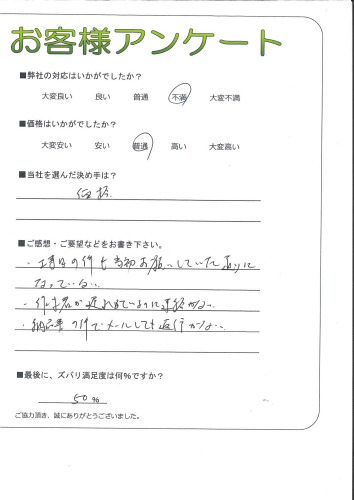 お客様アンケート
■弊社の対応はいかがでしたか？
大変良い 良い 普通 不満 大変不満
■価格はいかがでしたか？
大変安い 安い 普通 高い 大変高い
■当社を選んだ決め手は？
価格
■ご感想・ご要望などをお書き下さい。
・工事日の件も当初お願いしていた通りに
なっていない
・作業者が遅れているのに連絡がない
・納品書の件でメールしても返信がない
■最後に、ズバリ満足度は何％ですか？
50%
ご協力頂き、誠にありがとうございました。